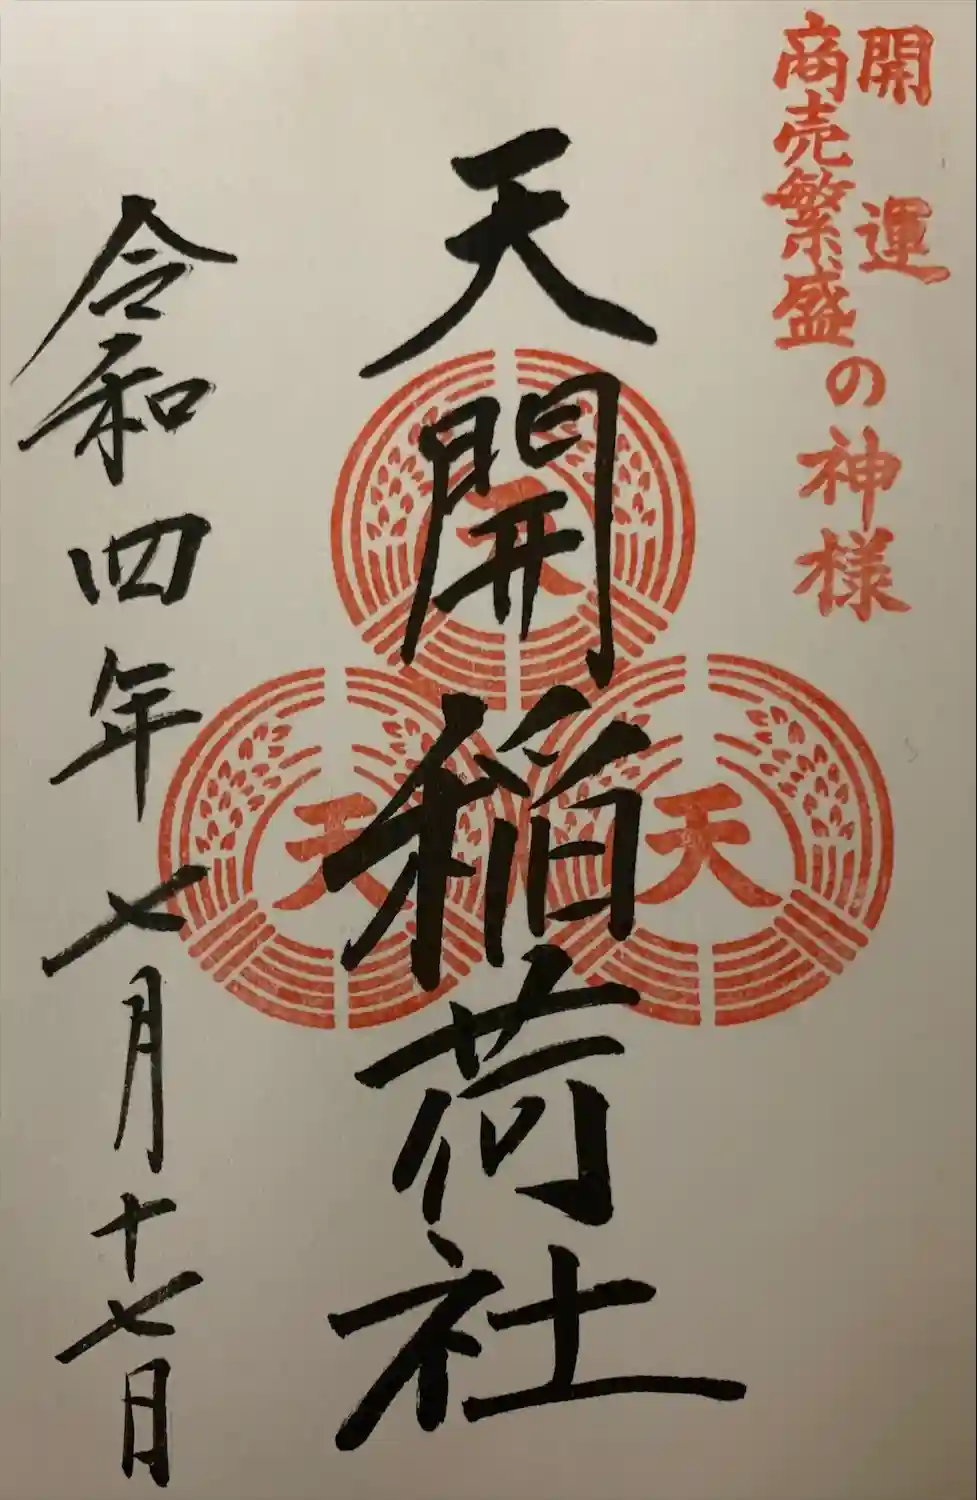 開運
商売繁盛
の神様
天開稲荷社
天
天
天
令和四年七月十七日